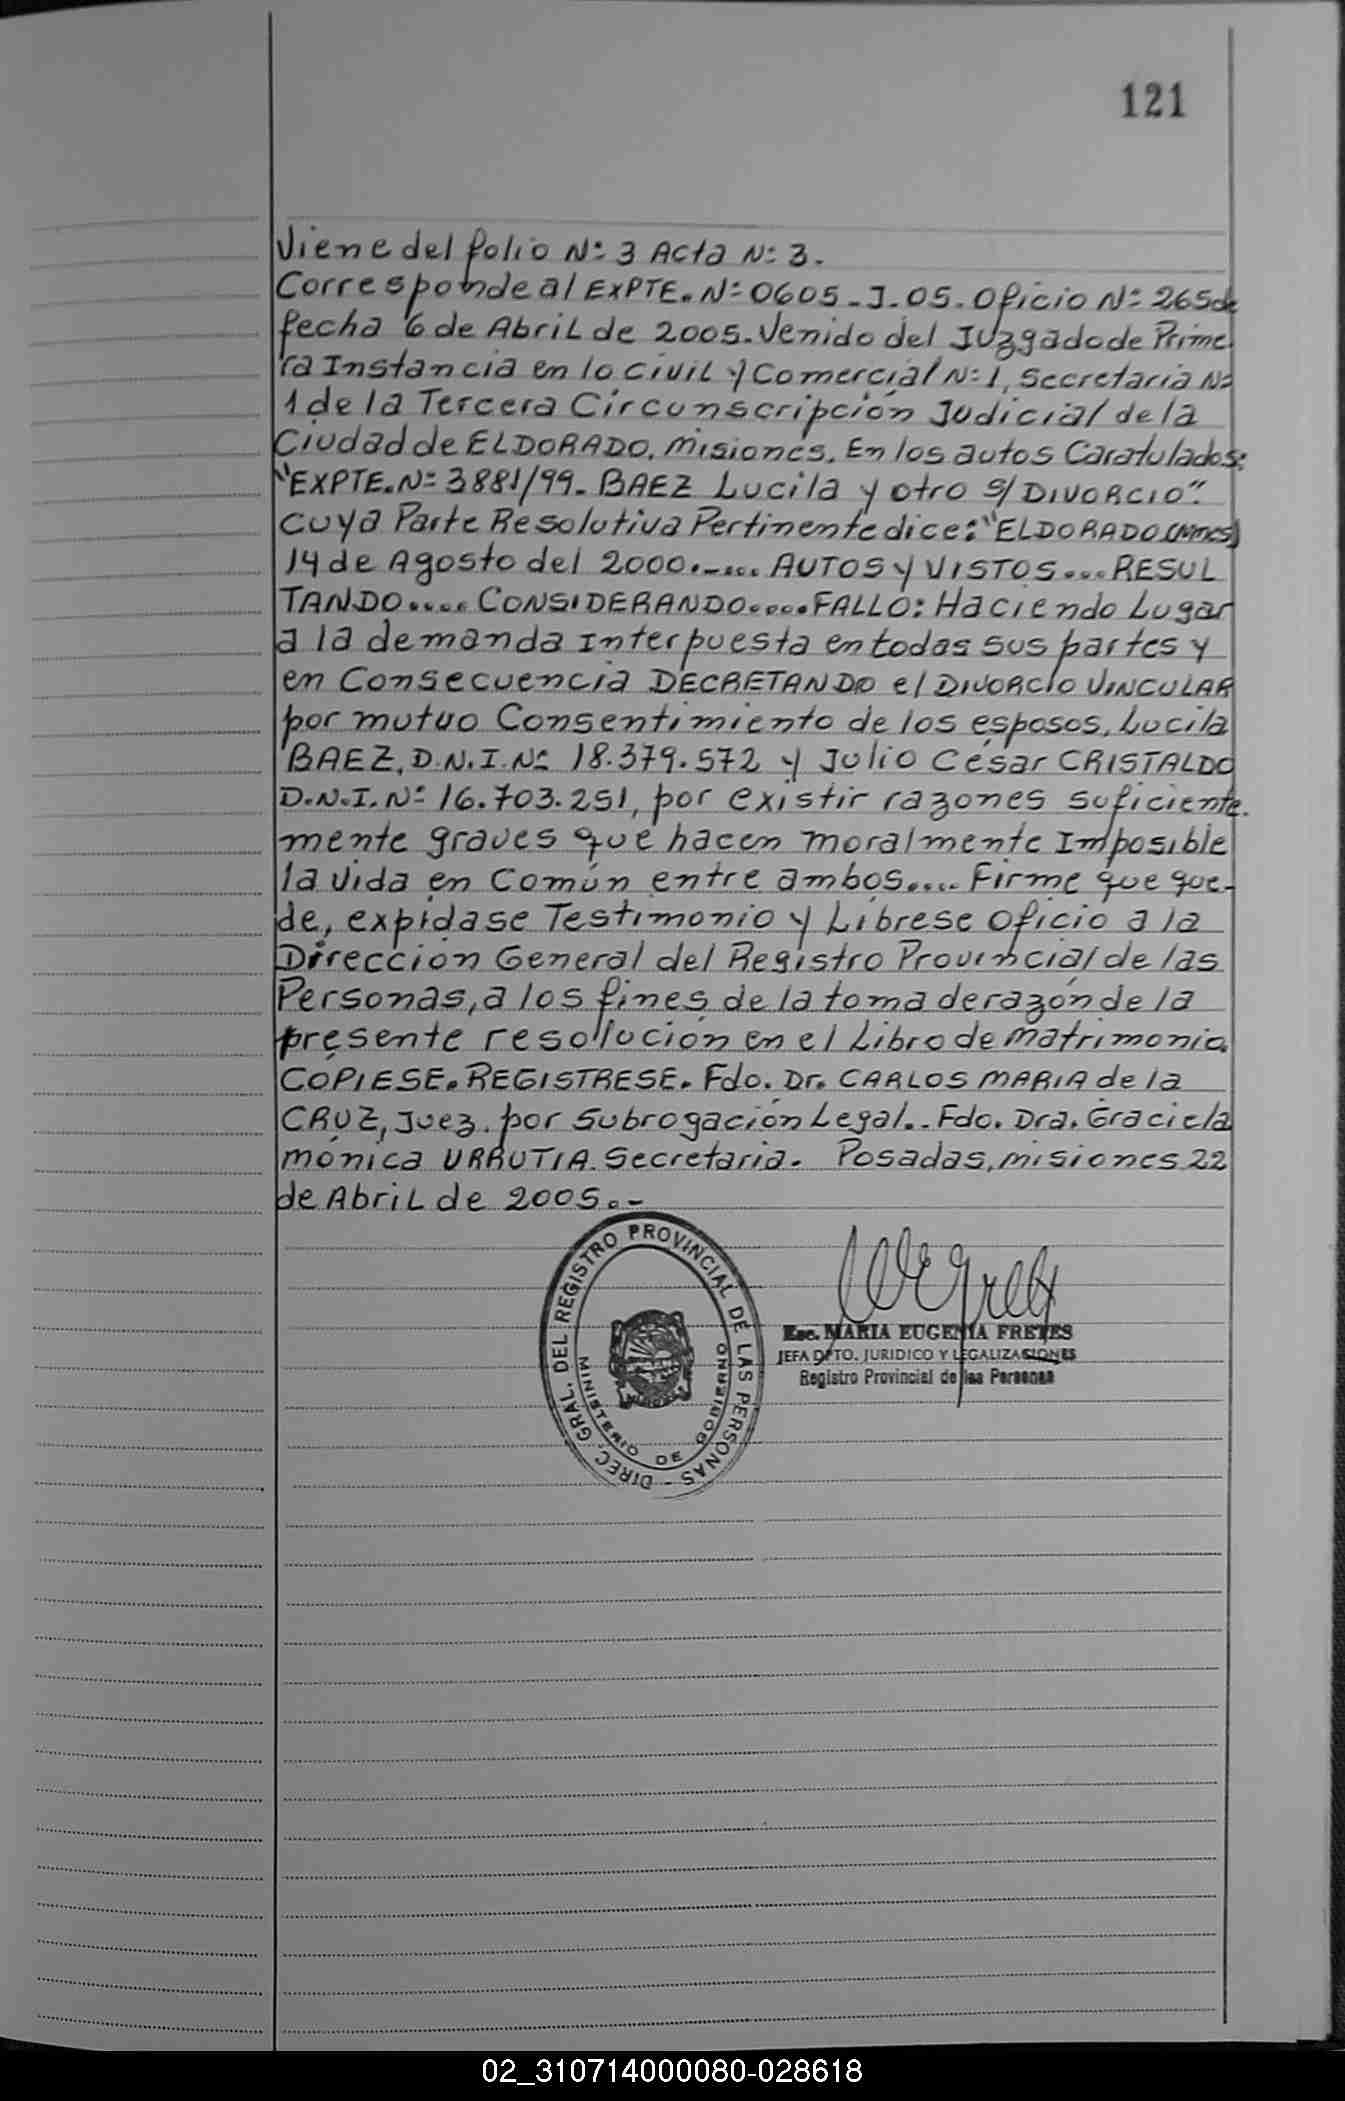 121
Viene del folio Nº 3 Acta Nº 3.
Corresponde al EXPTE. Nº 0605-J-05. Oficio Nº 265 de
fecha 6 de Abril de 2005. Venido del Juzgado de Prime
ra Instancia en lo Civil y Comercial Nº 1, Secretaria Nº
1 de la Tercera Circunscripción Judicial de la
Ciudad de ELDORADO, Misiones, En los autos Caratulados:
"EXPTE. Nº 3881/99 - BAEZ Lucila y otro S/ DIVORCIO".
cuya Parte Resolutiva Pertinente dice: "ELDORADO (Mnes)
14 de Agosto del 2000.-.... AUTOS y VISTOS.... RESUL
TANDO..... CONSIDERANDO..... FALLO: Haciendo Lugar
a la demanda Interpuesta en todas sus partes y
en Consecuencia DECRETANDO el DIVORCIO VINCULAR
por mutuo Consentimiento de los esposos, Lucila
BAEZ, D.N.I. Nº 18.379.572 y Julio César CRISTALDO
D.N.I. Nº 16.703.251, por existir razones suficiente-
mente graves que hacen moralmente Imposible
la vida en Común entre ambos.... Firme que que-
de, expídase Testimonio y Líbrese Oficio a la
Dirección General del Registro Provincial de las
Personas, a los fines de la toma de razón de la
presente resolución en el Libro de Matrimonio.
COPIESE. REGISTRESE. Fdo. Dr. CARLOS MARIA de la
CRUZ, Juez. por Subrogación Legal.. Fdo. Dra. Graciela
Mónica URRUTIA. Secretaria. Posadas, Misiones 22
de Abril de 2005.-
DIREC. GRAL. DEL REGISTRO PROVINCIAL DE LAS PERSONAS -
MINISTERIO DE GOBIERNO
Esc. MARIA EUGENIA FRETES
JEFA DPTO. JURIDICO Y LEGALIZACIONES
Registro Provincial de las Personas
02_310714000080-028618